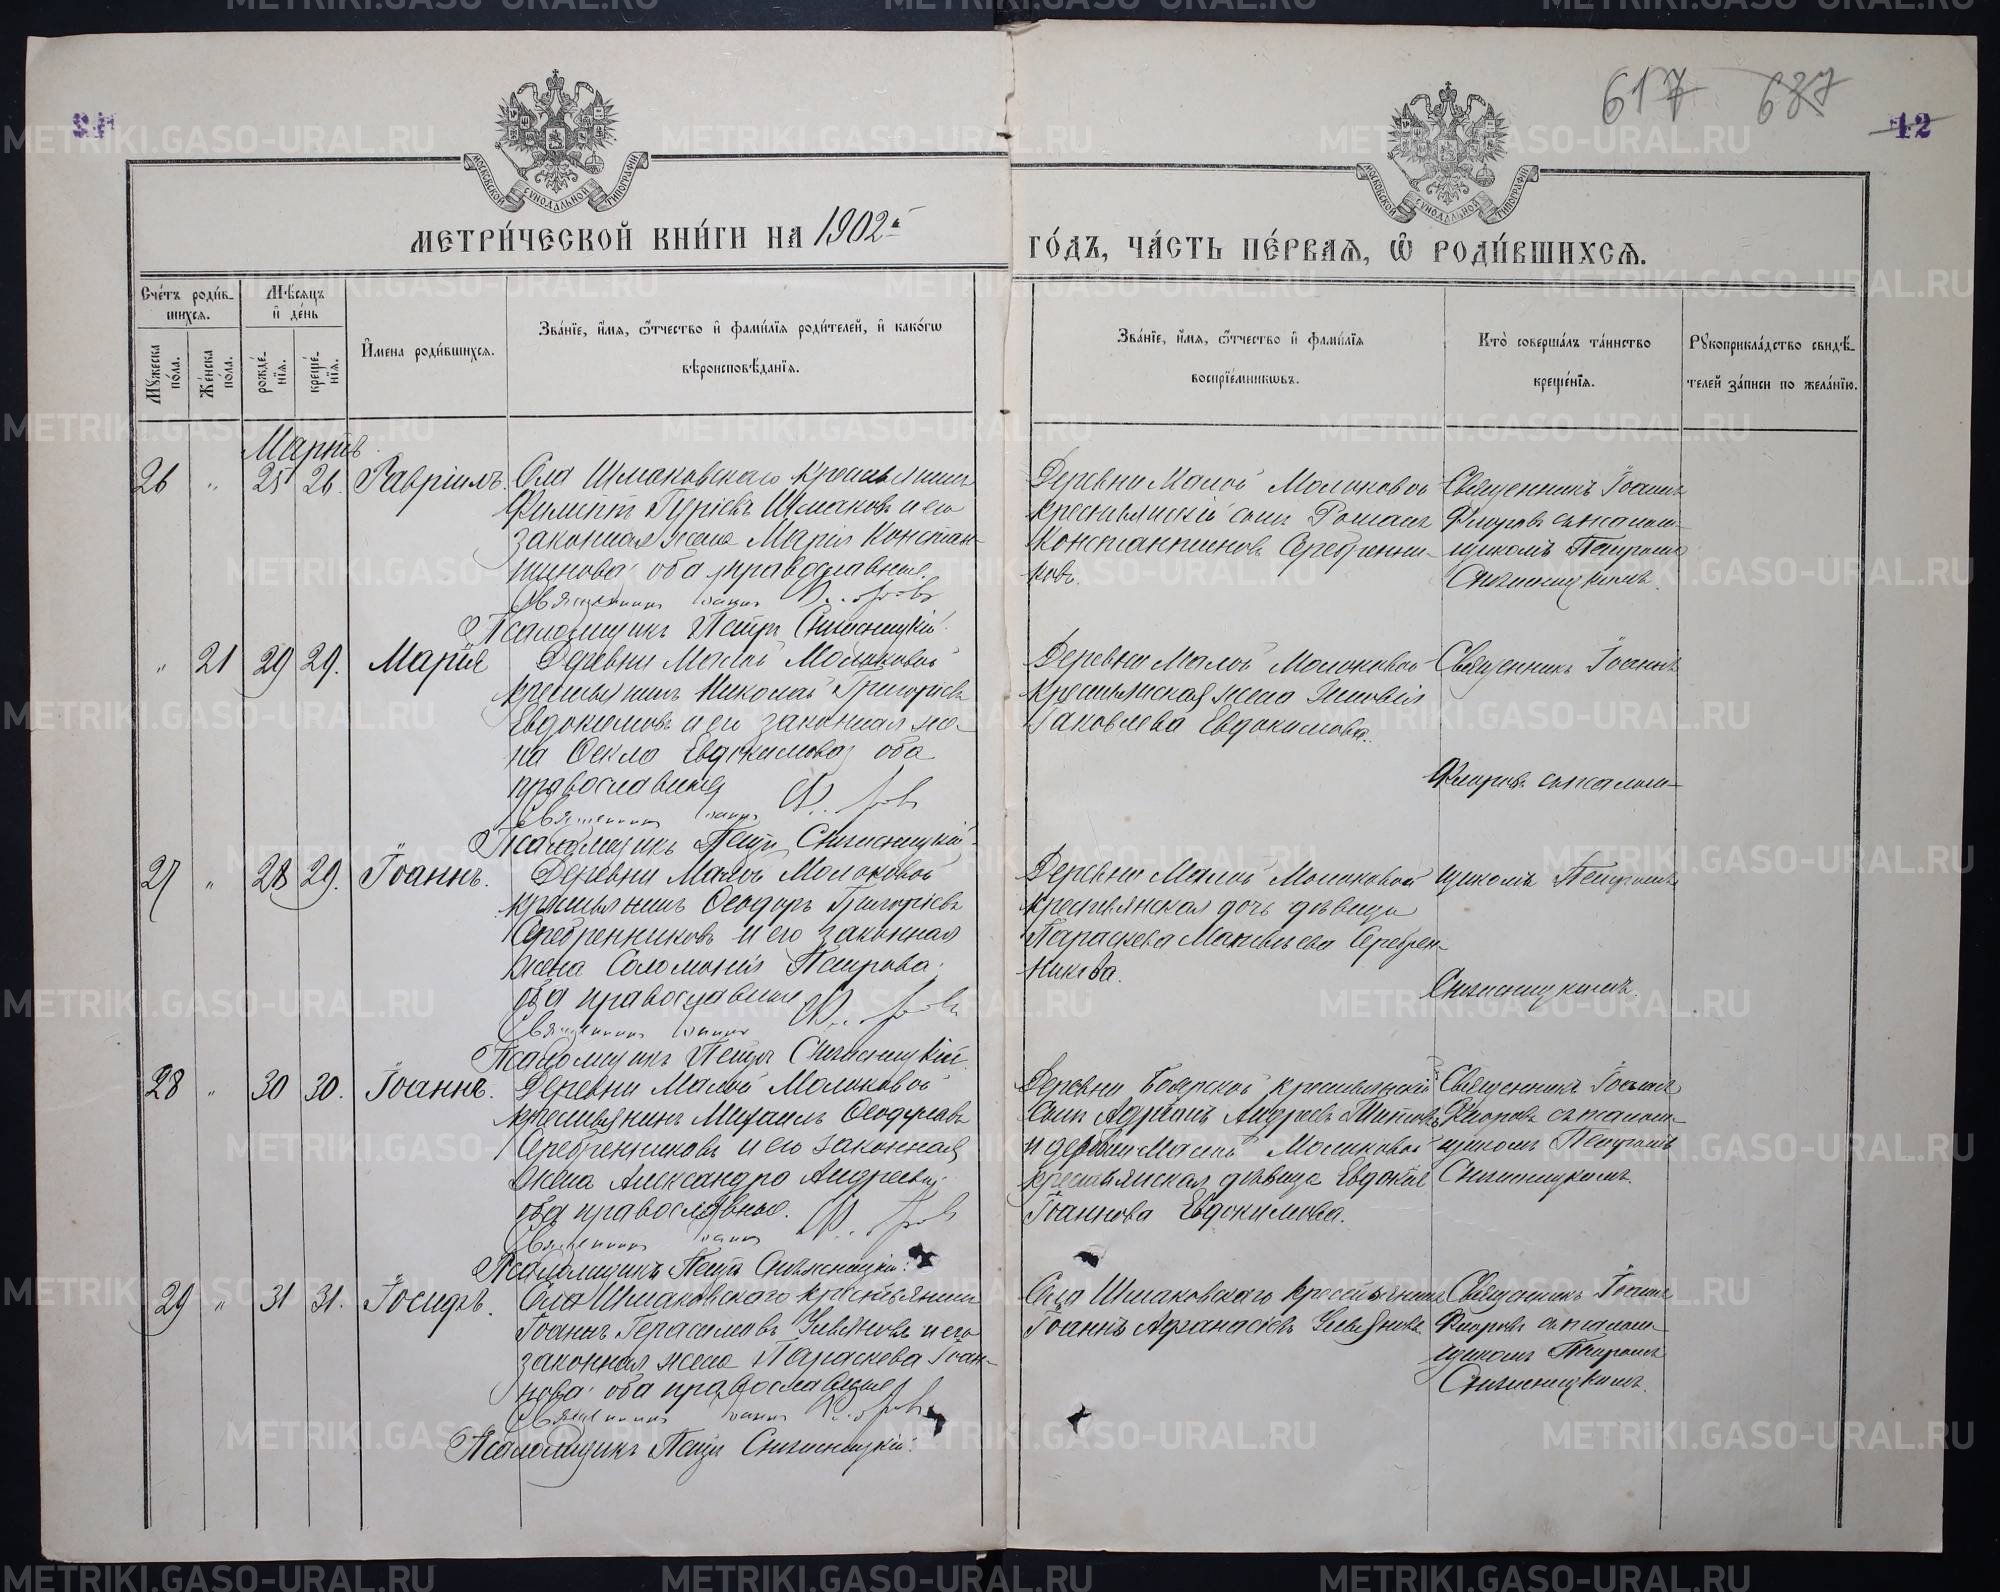 617 637
42
МЕТРИ́ЧЕСКОЙ КНИ́ГИ НА 1902й
ГО́ДЪ, ЧА́СТЬ ПЕ́РВАѦ, Ѡ҆ РОДИ́ВШИХСѦ.
Сче́тъ роди́в-
шихсѧ.
Мꙋжеска по́ла.
Же́нска по́ла.
Мѣ́сѧцъ и҆ де́нь
рожде́-
нїѧ.
креще́-
нїѧ.
И҆мена роди́вшихсѧ.
Зва́нїе, и҆́мѧ, ѻ҆́тчество и҆ фами́лїѧ роди́телей, и҆ како́гѡ
вѣроисповѣ́данїѧ.
Зва́нїе, и҆́мѧ, ѻ҆́тчество и҆ фами́лїѧ
воспрїе́мникѡвъ.
Кто̀ соверша́лъ та́инство
креще́нїѧ.
Рꙋкоприкла́дство свидѣ́-
телей за́писи по жела́нїю.
Мартъ
26 " 25 26. Гавріилъ.
Села Шмаковскаго крестьянинъ
Филиппъ Гуріевъ Шмаковъ и его
законная жена Марія Констан-
тинова: оба православные.
Священникъ Іоаннъ Флоровъ
Псаломщикъ Петръ Снѣжницкій.
Деревни Малой Молоковой
крестьянскій сынъ Романъ
Константиновъ Серебренни-
ковъ.
Священникъ Іоаннъ
Флоровъ съ псалом-
щикомъ Петромъ
" 21 29 29. Марія
Деревни Малой Молоковой
крестьянинъ Николай Григоріевъ
Евдокимовъ и его законная же-
на Ѳекла Евдокимова, оба
православные
Священникъ Іоаннъ Флоровъ
Псаломщикъ Петръ
Деревни Малой Молоковой
крестьянская жена
Іаковлева Евдокимова.
Священникъ Іоаннъ
Флоровъ съ псалом-
27 " 28 29. Іоаннъ.
Деревни Малой Молоковой
крестьянинъ Ѳеодоръ Григоріевъ
Серебренниковъ и его законная
жена Соломонія Петрова:
оба православные
Священникъ Іоаннъ Флоровъ
Псаломщикъ Петръ
Деревни Малой Молоковой
крестьянская дочь дѣвица
Параскева Серебрен-
никова.
щикомъ Петромъ
28 " 30 30. Іоаннъ.
Деревни Малой Молоковой
крестьянинъ Михаилъ Ѳеодоровъ
Серебренниковъ и его законная
жена Александра Андреева:
оба православные.
Священникъ Іоаннъ Флоровъ
Псаломщикъ Петръ
Деревни Боярской крестьянскій
сынъ Адріанъ Андреевъ Титовъ
и деревни Малой Молоковой
крестьянская дѣвица Евдокія
Іоаннова Евдокимова.
Священникъ Іоаннъ
Флоровъ съ псалом-
щикомъ Петромъ
29 " 31 31. Іосифъ.
Села Шмаковскаго крестьянинъ
Іоаннъ Герасимовъ и его
законная жена Параскева Іоан-
нова: оба православные
Священникъ Іоаннъ Флоровъ
Псаломщикъ Петръ
Села Шмаковскаго крестьянинъ
Іоаннъ Афанасіевъ
Священникъ Іоаннъ
Флоровъ съ псалом-
щикомъ Петромъ
METRIKI.GASO-URAL.RU